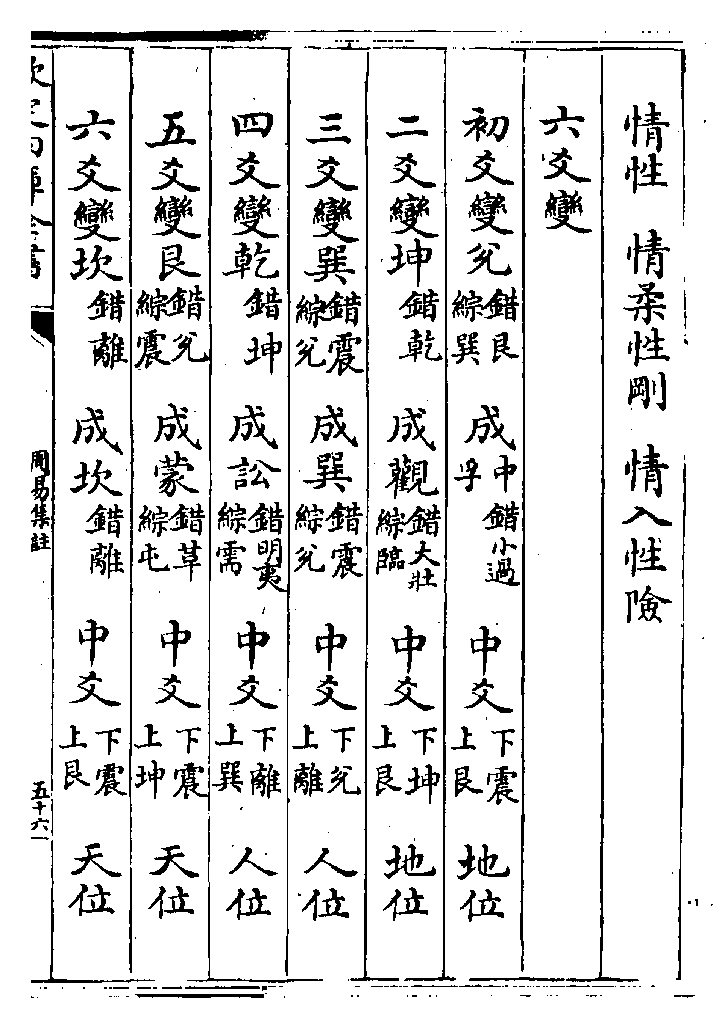 情性 情柔性剛 情入性險
六爻變
初爻變兌 錯艮 綜巽 成中孚 錯小過 中爻 下震 上艮 地位
二爻變坤 錯乾 成觀 錯大壯 綜臨 中爻 下坤 上艮 地位
三爻變巽 錯震 綜兌 成巽 錯震 綜兌 中爻 下兌 上離 人位
四爻變乾 錯坤 成訟 錯明夷 綜需 中爻 下離 上巽 人位
五爻變艮 錯兌 綜震 成蒙 錯革 綜屯 中爻 下震 上坤 天位
六爻變坎 錯離 成坎 錯離 中爻 下震 上艮 天位
欽定四庫全書 周易集註 五十六